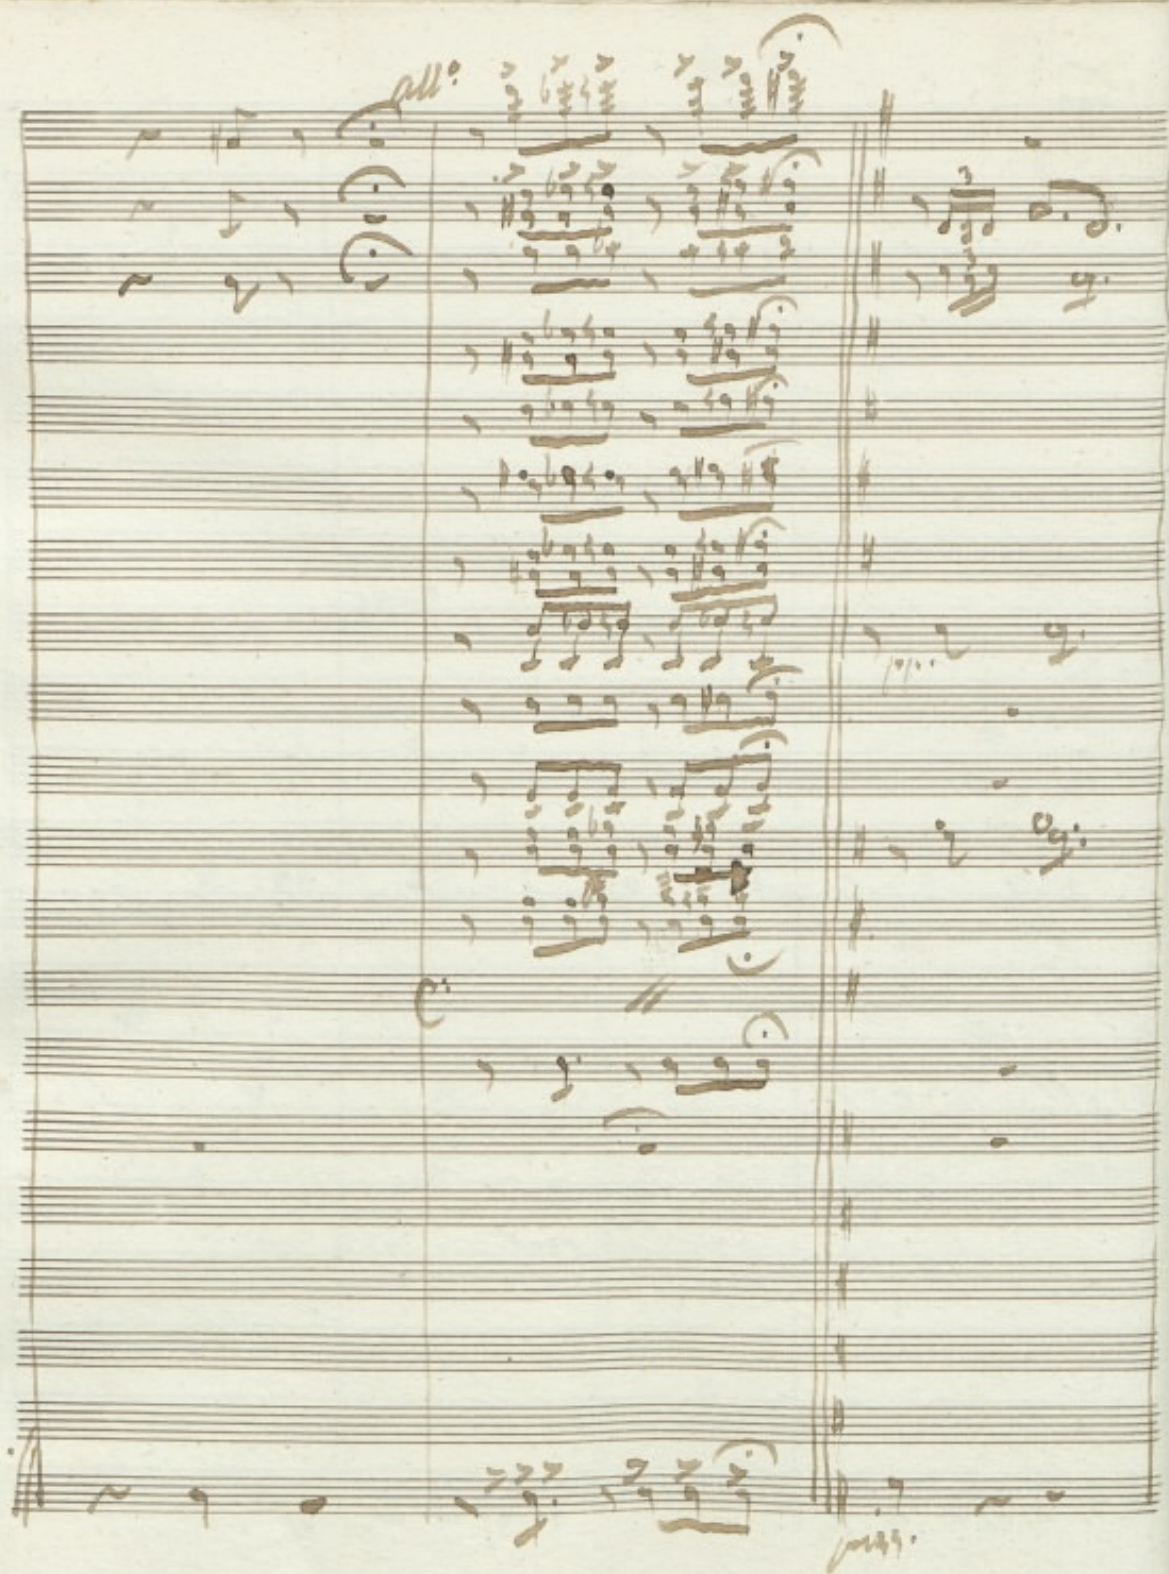 all°
pp.
pizz.